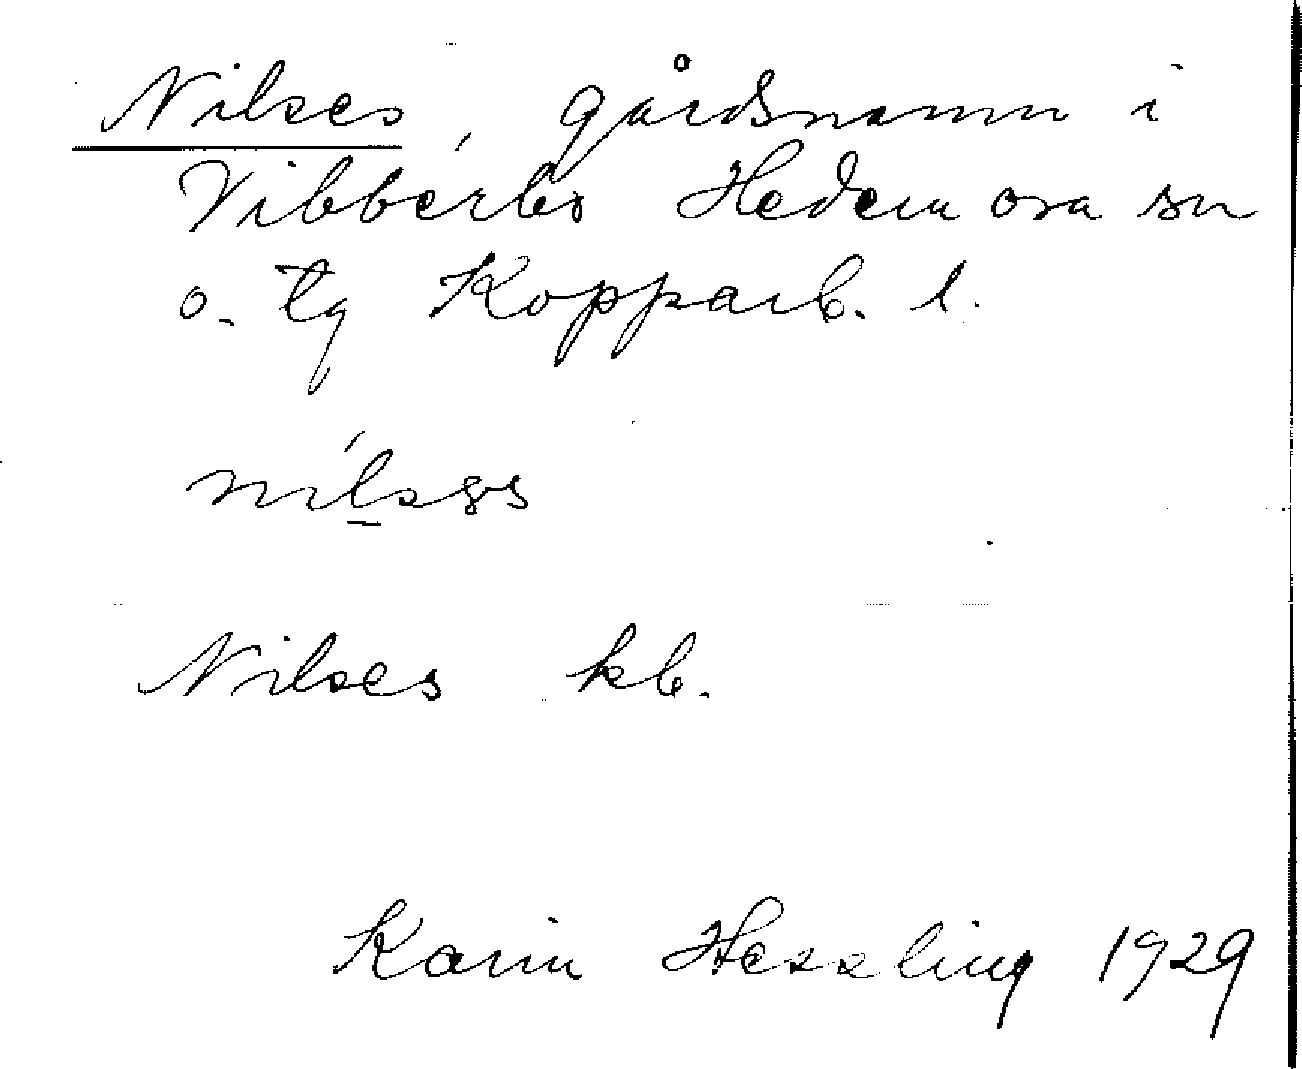 Nilses, gårdsnamn i
Vibberbo Hedemora sn
o. tg Kopparb. l.
Nilses kb.
Karin Hessling 1929